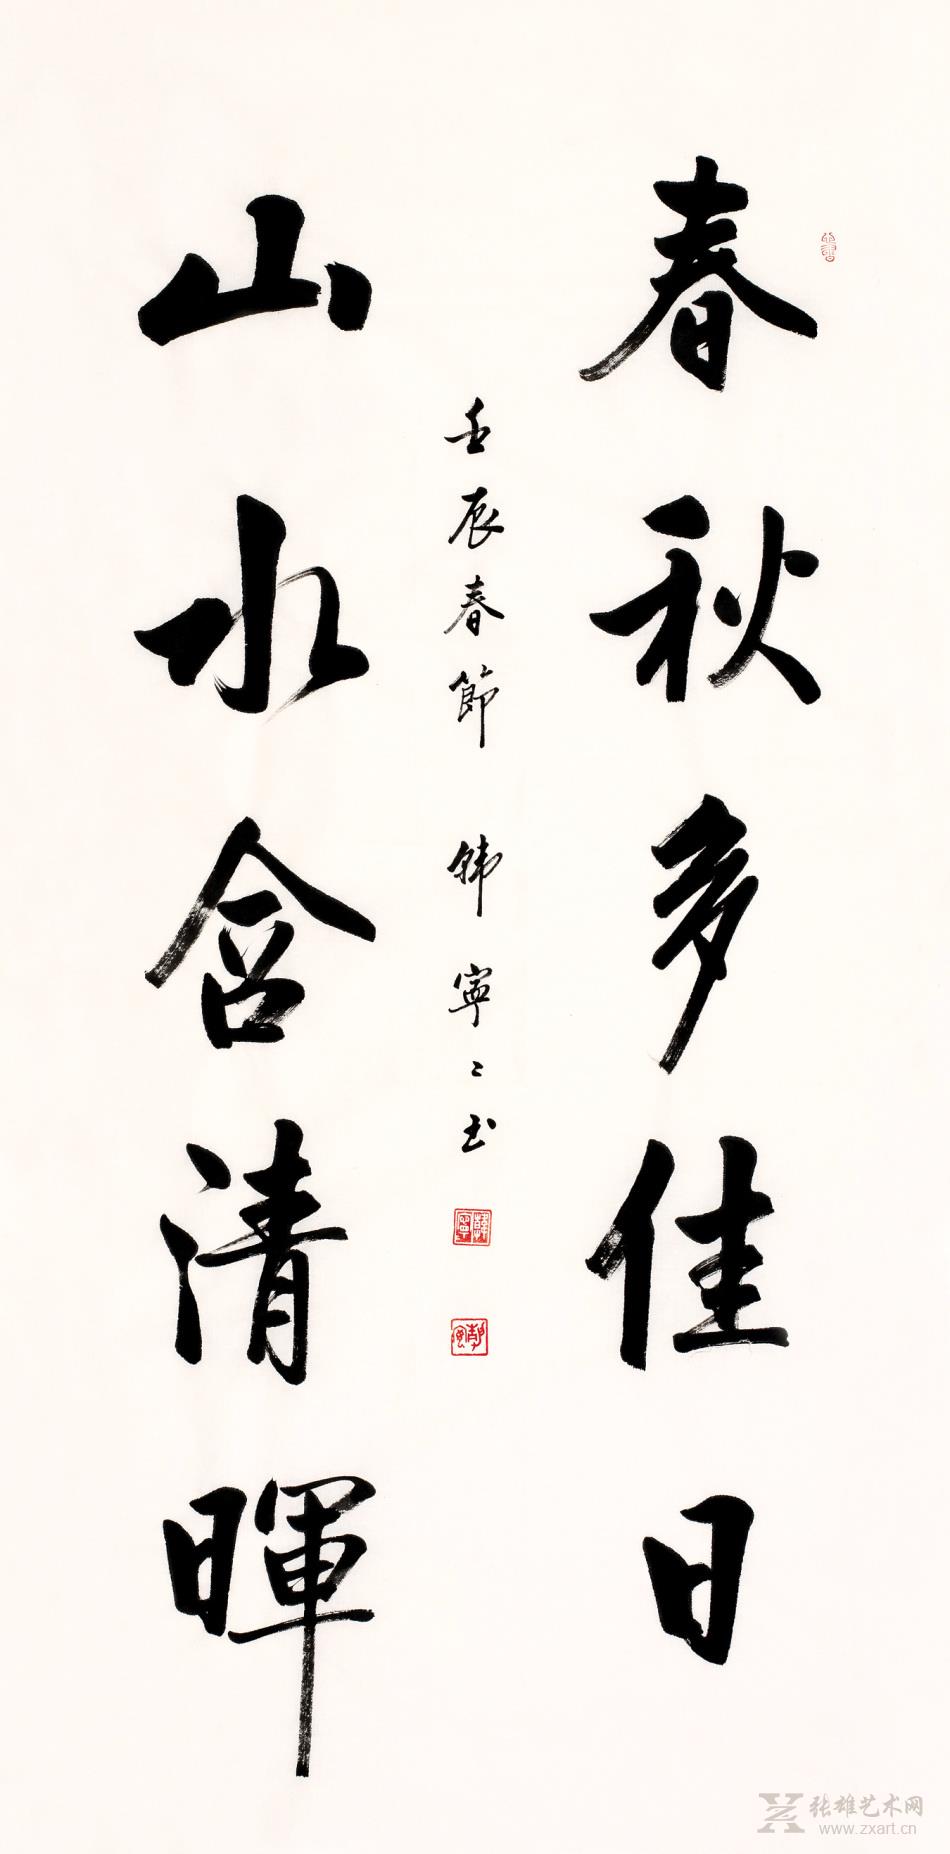 春秋多佳日
山水含清暉
壬辰春節 韓寧寧书
韓寧
张雄艺术网
www.zxart.cn